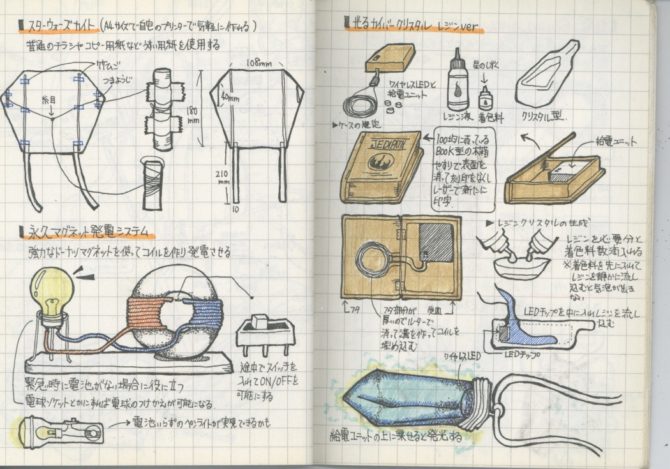 スターウォーズカイト(A4サイズで自宅のプリンターで気軽に作れる)
普通のチラシやコピー用紙など薄い用紙を使用する
竹ひご
つまようじ
糸目
180
mm
108mm
40mm
210
mm
10
永久マグネット発電システム
強力なドーナツマグネットを使ってコイルを作り発電させる
途中でスイッチを
入れてON/OFFを
可能にする
緊急時に電池がない場合に役に立つ
電球ソケットとかにすれば電球のつけかえが可能になる
電池いらずのペンライトが実現できるかも
光るカイバークリスタル レジンver
ワイヤレスLEDと
給電ユニット
レジン液
星の雫
着色料
クリスタル型
▶ケースの構造
JEDI
100均に売っている
BOOK型の木箱
やすりで表面を
消って刻印をなくし
レーザーで新たに
印字
給電ユニット
フタ
フタ部分が
厚いのでルーターで
消って溝を作ってコイルを
埋め込む
裏面
▶レジンクリスタルの生成
レジンを必要分と
着色料数滴入れる
※着色料を先に入れて
レジンを静かに流し
込むと気泡が出ま
ない
LEDチップを中に入れレジンを流し
込む
LEDチップ
ワイヤレスLED
給電ユニットの上に乗せると発光する